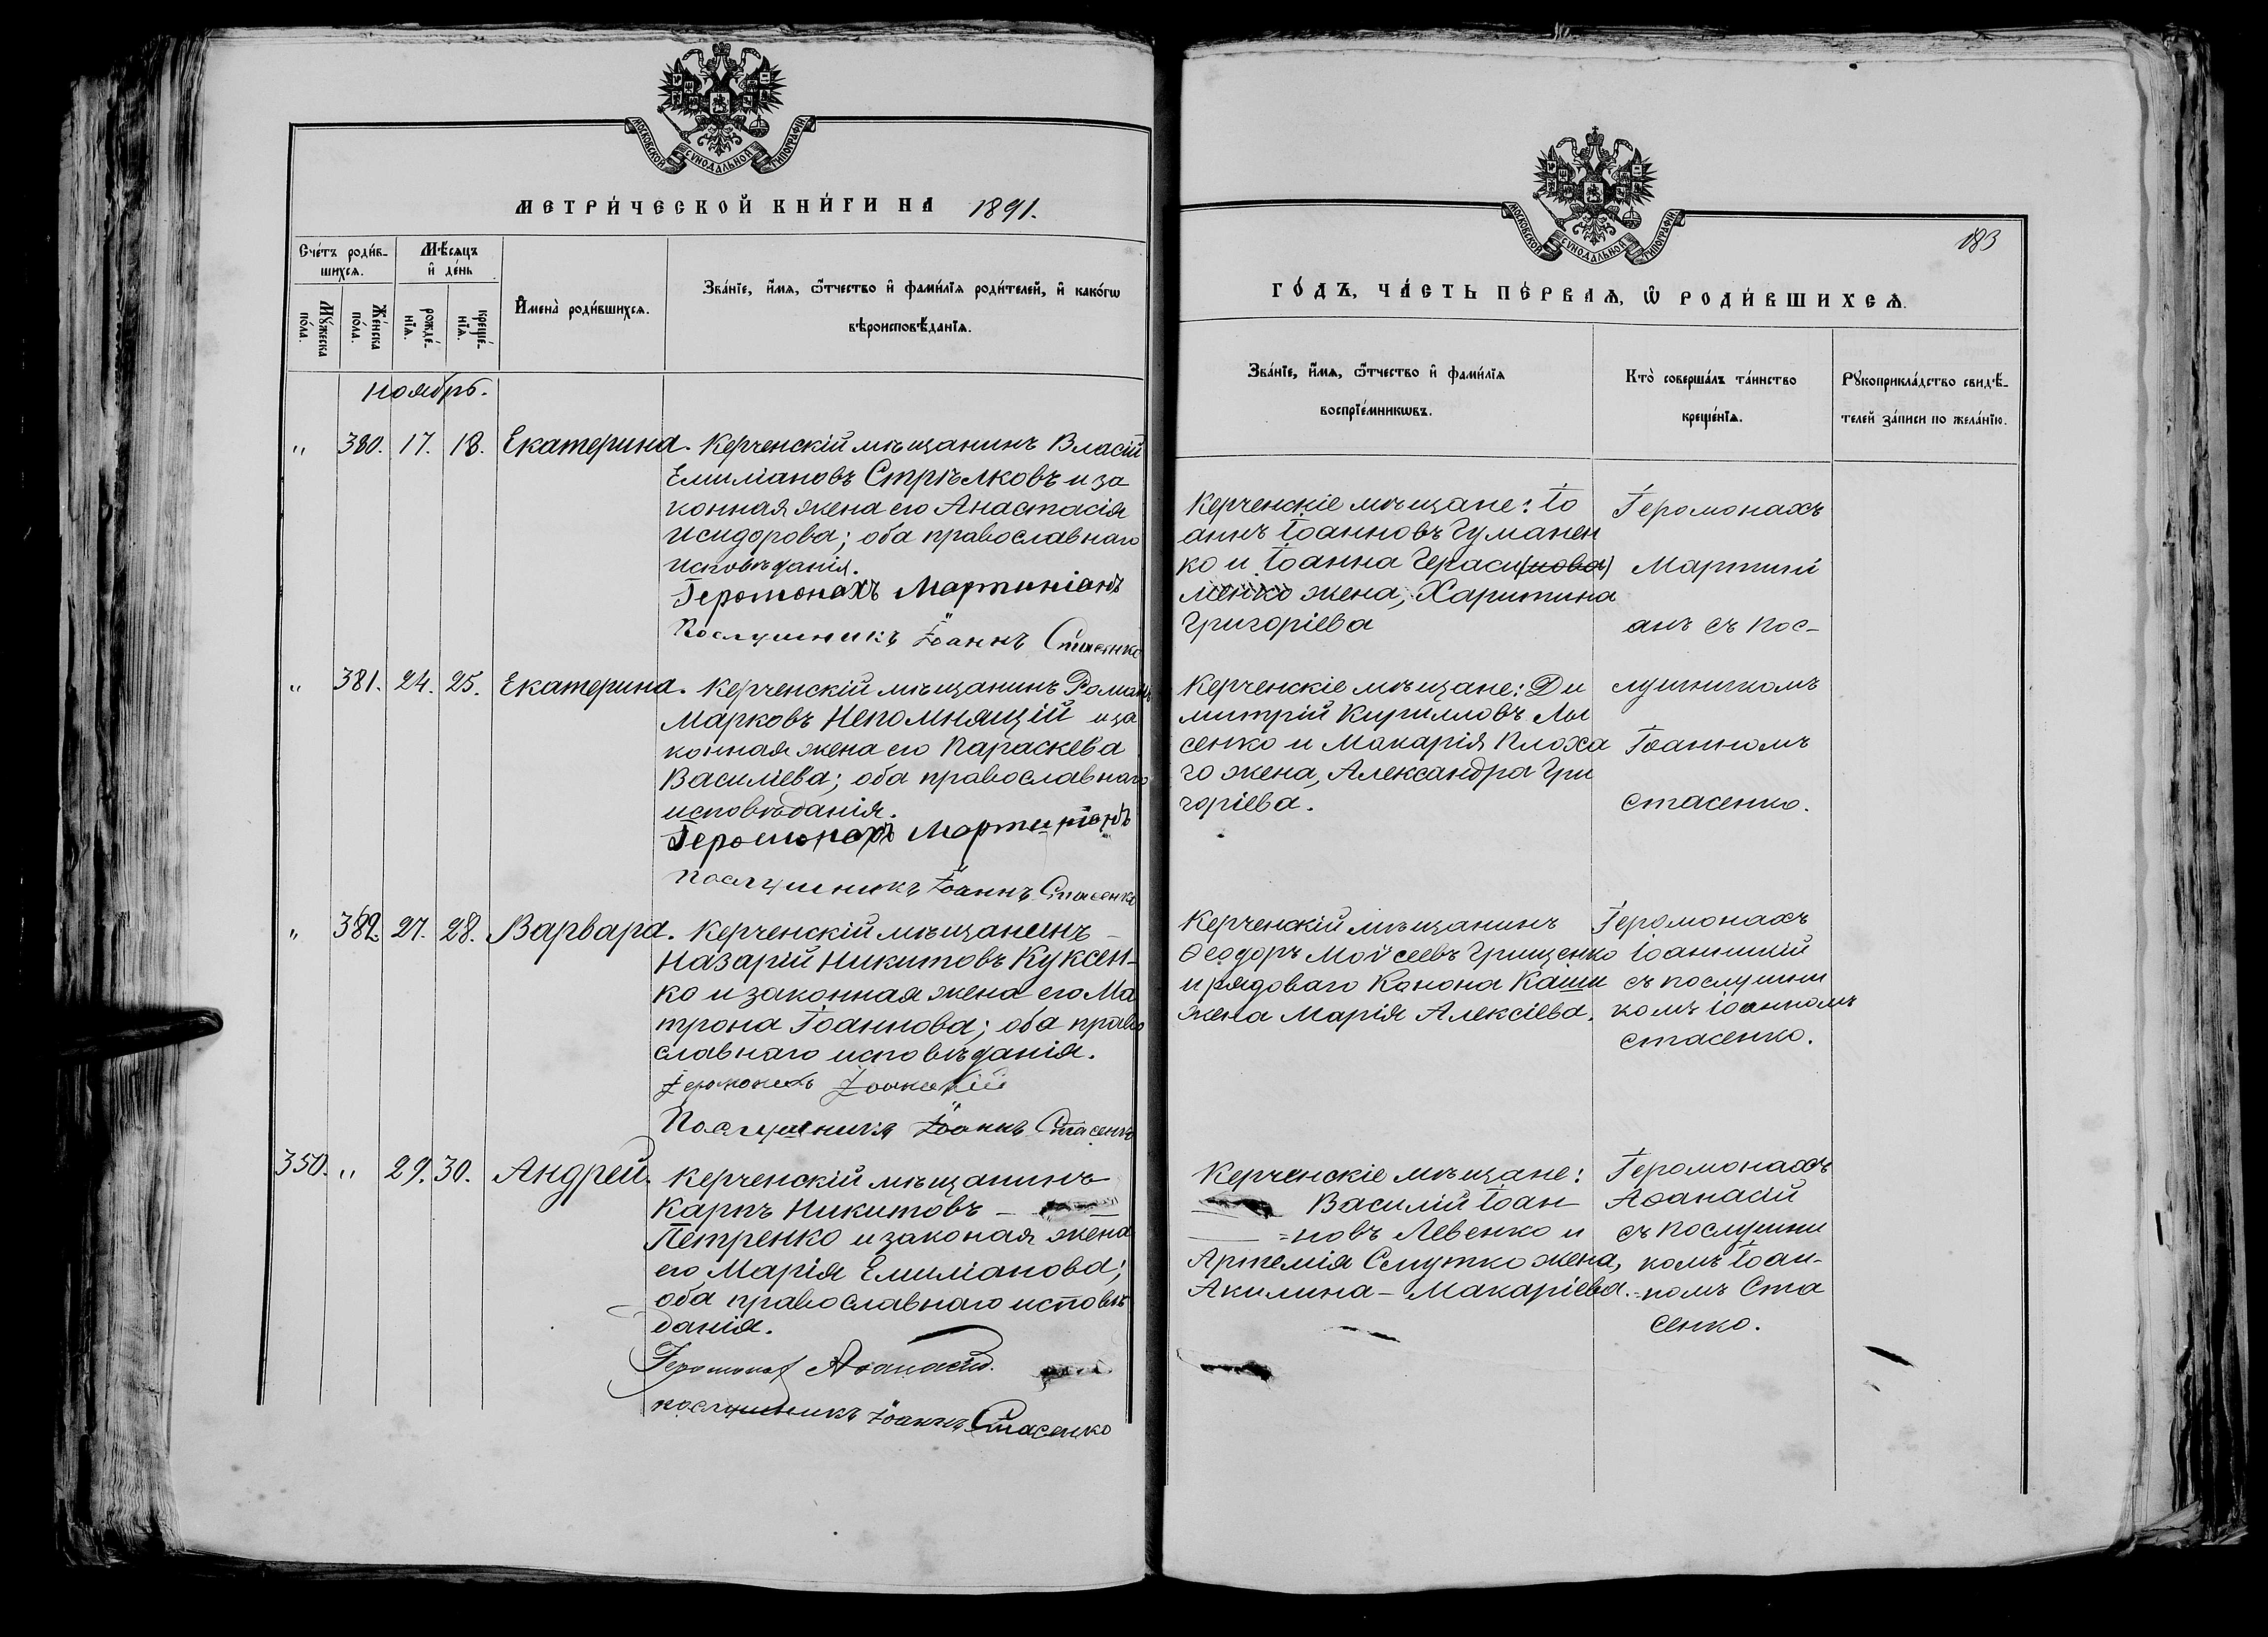 МОСКОВСКОЙ СѴНОДАЛЬНОЙ ТИПОГРАФІИ
МЕТРИ́ЧЕСКОЙ КНИ́ГИ НА 1891.
Сче́тъ роди́в-
шихсѧ.
Мѣ́сѧцъ
и҆ де́нь
И҆мена̀ роди́вшихсѧ.
Зва́нїе, и҆́мѧ, ѻ҆́тчество и҆ фами́лїѧ роди́телей, и҆ како́гѡ
вѣроисповѣ́данїѧ.
Мꙋ́жеска
по́ла.
Же́нска
по́ла.
рожде́-
нїѧ.
креще́-
нїѧ.
Ноябрь.
" 380. 17. 18. Екатерина. Керченскій мѣщанинъ Власій
Емиліановъ Стрѣлковъ и за
конная жена его Анастасія
Исидорова; оба православнаго
исповѣданія.
Іеромонахъ Мартиніанъ
Послушникъ Іоаннъ Стасенко
" 381. 24. 25. Екатерина. Керченскій мѣщанинъ Романъ
Марковъ Непомнящій и за
конная жена его Параскева
Василіева; оба православнаго
исповѣданія.
Іеромонахъ Мартиніанъ
Послушникъ Іоаннъ Стасенко
" 382. 27. 28. Варвара. Керченскій мѣщанинъ
Назарій Никитовъ Куксен-
ко и законная жена его Ма
трона Іоаннова; оба право
славнаго исповѣданія.
Іеромонахъ Іоаникій
Послушникъ Іоаннъ Стасенко
350. " 29. 30. Андрей. Керченскій мѣщанинъ
Карпъ Никитовъ –
Петренко и законая жена
его Марія Емиліанова;
оба православнаго исповѣ
данія.
Іеромонах Аѳанасій.
послушникъ Іоаннъ Стасенко
МОСКОВСКОЙ СѴНОДАЛЬНОЙ ТИПОГРАФІИ
183
ГО́ДЪ, ЧА́СТЬ ПЕ́РВАѦ, Ѡ҆ РОДИ́ВШИХСѦ.
Зва́нїе, и҆́мѧ, ѻ҆́тчество и҆ фами́лїѧ
воспрїе́мникѡвъ.
Кто̀ соверша́лъ та́инство
креще́нїѧ.
Рꙋкоприкла́дство свидѣ́-
телей за́писи по жела́нїю.
Керченскіе мѣщане: Іо
аннъ Іоанновъ Гуманен
ко и Іоанна Гераси(мова)
менко жена, Харитина
Григоріева
Іеромонахъ
Мартині
анъ съ пос-
Керченскіе мѣщане: Ди
митрій Кирилловъ Лы
сенко и Макарія Плоха
го жена, Александра Гри
горіева.
лушникомъ
Іоанномъ
Стасенко.
Керченскій мѣщанинъ
Ѳеодоръ Мойсеевъ Грищенко
и рядоваго Конона Каши
жена Марія Алексіева.
Іеромонахъ
Іоанникій
съ послушни
комъ Іоанномъ
Стасенко.
Керченскіе мѣщане:
Василій Іоан
=новъ Левенко и
Артемія Сепутко жена,
Акилина – Макаріева.
Іеромонахъ
Аѳанасій
съ послушни
комъ Іоан-
=номъ Ста
сенко.